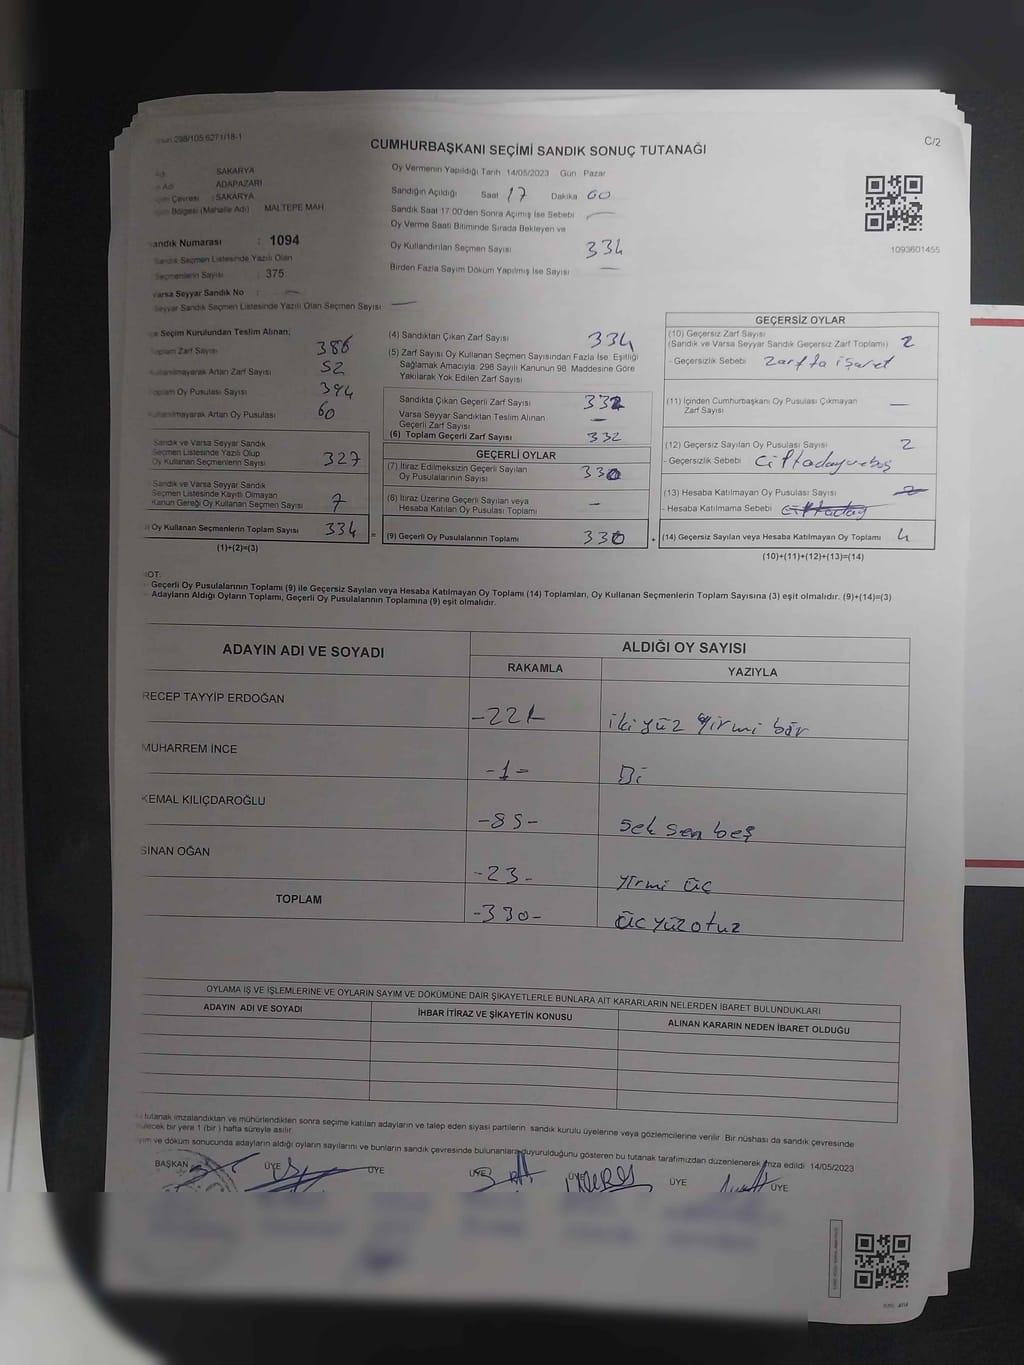 298/105.6271/18-1
C/2
CUMHURBAŞKANI SEÇİMİ SANDIK SONUÇ TUTANAĞI
SAKARYA
Adı ADAPAZARI
Çevresi : SAKARYA
Bölgesi (Mahalle Adı) MALTEPE MAH.
Sandık Numarası : 1094
Sandık Seçmen Listesinde Yazılı Olan
Seçmenlerin Sayısı : 375
Varsa Seyyar Sandık No : —
Seyyar Sandık Seçmen Listesinde Yazılı Olan Seçmen Sayısı : —
Oy Vermenin Yapıldığı Tarih 14/05/2023 Gün Pazar
Sandığın Açıldığı Saat 17 Dakika 00
Sandık Saat 17:00'den Sonra Açılmış İse Sebebi —
Oy Verme Saati Bitiminde Sırada Bekleyen ve
Oy Kullandırılan Seçmen Sayısı 334
Birden Fazla Sayım Döküm Yapılmış İse Sayısı —
1093601455
Seçim Kurulundan Teslim Alınan;
Toplam Zarf Sayısı 386
Kullanılmayarak Artan Zarf Sayısı 52
Toplam Oy Pusulası Sayısı 394
Kullanılmayarak Artan Oy Pusulası 60
Sandık ve Varsa Seyyar Sandık
Seçmen Listesinde Yazılı Olup
Oy Kullanan Seçmenlerin Sayısı 327
Sandık ve Varsa Seyyar Sandık
Seçmen Listesinde Kayıtlı Olmayan
Kanun Gereği Oy Kullanan Seçmen Sayısı 7
Oy Kullanan Seçmenlerin Toplam Sayısı 334 =
(1)+(2)=(3)
(4) Sandıktan Çıkan Zarf Sayısı 334
(5) Zarf Sayısı Oy Kullanan Seçmen Sayısından Fazla İse, Eşitliği
Sağlamak Amacıyla, 298 Sayılı Kanunun 98. Maddesine Göre
Yakılarak Yok Edilen Zarf Sayısı
Sandıkta Çıkan Geçerli Zarf Sayısı 332
Varsa Seyyar Sandıktan Teslim Alınan
Geçerli Zarf Sayısı —
(6) Toplam Geçerli Zarf Sayısı 332
GEÇERLİ OYLAR
(7) İtiraz Edilmeksizin Geçerli Sayılan
Oy Pusulalarının Sayısı 330
(8) İtiraz Üzerine Geçerli Sayılan veya
Hesaba Katılan Oy Pusulası Toplamı —
(9) Geçerli Oy Pusulalarının Toplamı 330 +
GEÇERSİZ OYLAR
(10) Geçersiz Zarf Sayısı
(Sandık ve Varsa Seyyar Sandık Geçersiz Zarf Toplamı) 2
- Geçersizlik Sebebi zarfta işaret
(11) İçinden Cumhurbaşkanı Oy Pusulası Çıkmayan
Zarf Sayısı —
(12) Geçersiz Sayılan Oy Pusulası Sayısı 2
- Geçersizlik Sebebi çiftadayveboş
(13) Hesaba Katılmayan Oy Pusulası Sayısı 2
- Hesaba Katılmama Sebebi çiftaday
(14) Geçersiz Sayılan veya Hesaba Katılmayan Oy Toplamı 4
(10)+(11)+(12)+(13)=(14)
NOT:
- Geçerli Oy Pusulalarının Toplamı (9) ile Geçersiz Sayılan veya Hesaba Katılmayan Oy Toplamı (14) Toplamları, Oy Kullanan Seçmenlerin Toplam Sayısına (3) eşit olmalıdır. (9)+(14)=(3)
- Adayların Aldığı Oyların Toplamı, Geçerli Oy Pusulalarının Toplamına (9) eşit olmalıdır.
ADAYIN ADI VE SOYADI ALDIĞI OY SAYISI
RAKAMLA YAZIYLA
RECEP TAYYİP ERDOĞAN -221- iki yüz yirmi bir
MUHARREM İNCE -1- Bi
KEMAL KILIÇDAROĞLU -85- Sek sen beş
SİNAN OĞAN -23- yirmi üç
TOPLAM -330- üç yüz otuz
OYLAMA İŞ VE İŞLEMLERİNE VE OYLARIN SAYIM VE DÖKÜMÜNE DAİR ŞİKAYETLERLE BUNLARA AİT KARARLARIN NELERDEN İBARET BULUNDUKLARI
ADAYIN ADI VE SOYADI İHBAR İTİRAZ VE ŞİKAYETİN KONUSU ALINAN KARARIN NEDEN İBARET OLDUĞU
tutanak imzalandıktan ve mühürlendikten sonra seçime katılan adayların ve talep eden siyasi partilerin sandık kurulu üyelerine veya gözlemcilerine verilir. Bir nüshası da sandık çevresinde
bir yere 1 (bir) hafta süreyle asılır.
ve döküm sonucunda adayların aldığı oyların sayılarını ve bunların sandık çevresinde bulunanlara duyurulduğunu gösteren bu tutanak tarafımızdan düzenlenerek imza edildi. 14/05/2023
BAŞKAN ÜYE ÜYE ÜYE ÜYE ÜYE ÜYE